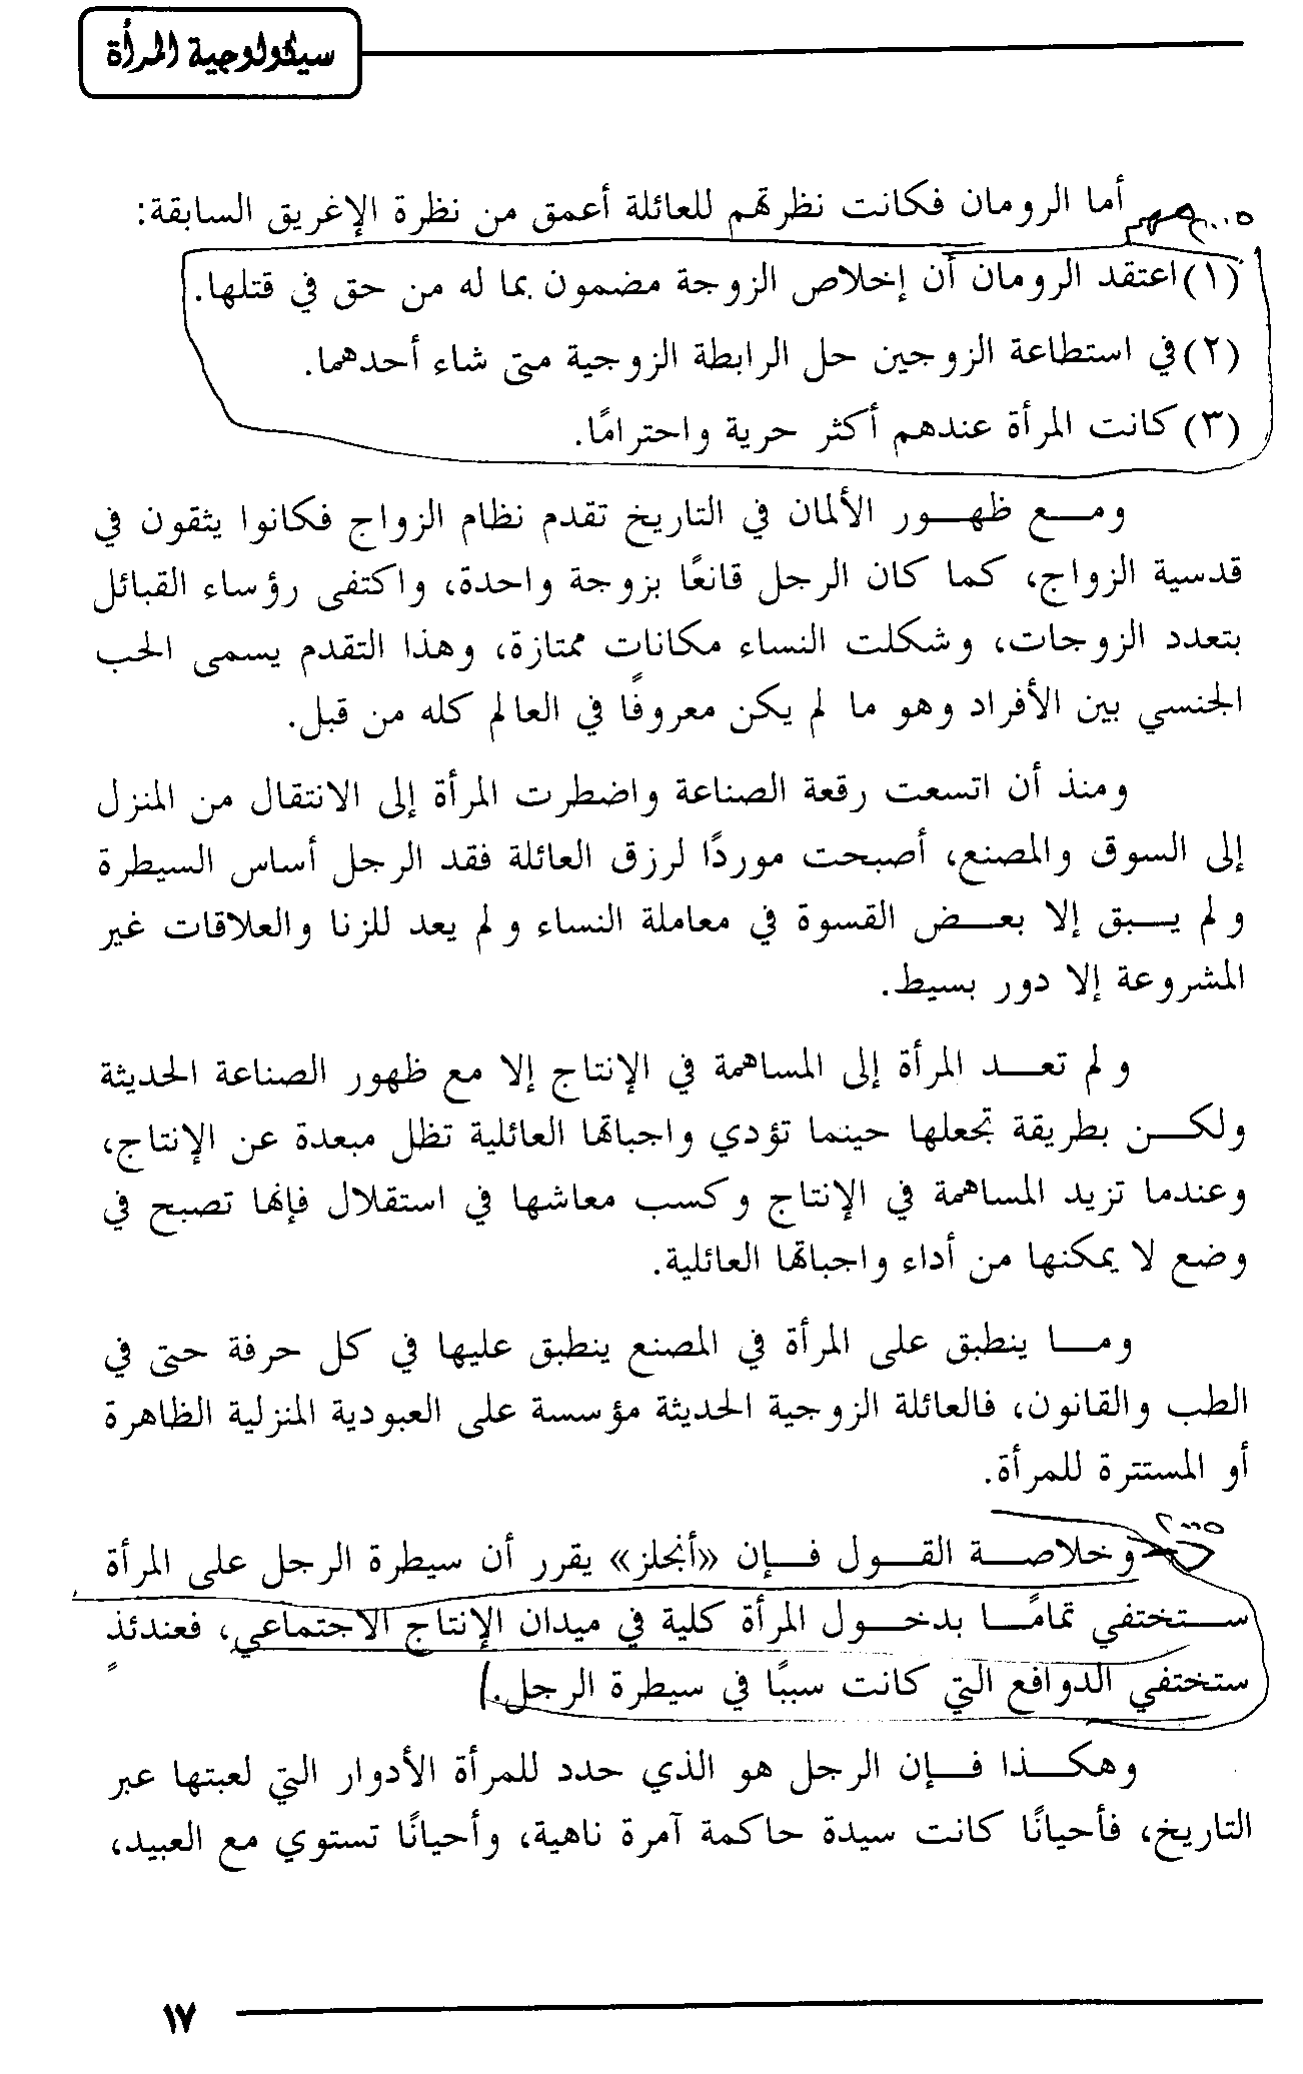 سيكولوجية المرأة
أما الرومان فكانت نظرتهم للعائلة أعمق من نظرة الإغريق السابقة:
(١) اعتقد الرومان أن إخلاص الزوجة مضمون بما له من حق في قتلها.
(٢) في استطاعة الزوجين حل الرابطة الزوجية متى شاء أحدهما.
(٣) كانت المرأة عندهم أكثر حرية واحترامًا.
ومع ظهور الألمان في التاريخ تقدم نظام الزواج فكانوا يثقون في
قدسية الزواج، كما كان الرجل قانعًا بزوجة واحدة، واكتفى رؤساء القبائل
بتعدد الزوجات، وشكلت النساء مكانات ممتازة، وهذا التقدم يسمى الحب
الجنسي بين الأفراد وهو ما لم يكن معروفًا في العالم كله من قبل.
ومنذ أن اتسعت رقعة الصناعة واضطرت المرأة إلى الانتقال من المنزل
إلى السوق والمصنع، أصبحت موردًا لرزق العائلة فقد الرجل أساس السيطرة
ولم يبق إلا بعض القسوة في معاملة النساء ولم يعد للزنا والعلاقات غير
المشروعة إلا دور بسيط.
ولم تعد المرأة إلى المساهمة في الإنتاج إلا مع ظهور الصناعة الحديثة
ولكن بطريقة تجعلها حينما تؤدي واجباتها العائلية تظل مبعدة عن الإنتاج،
وعندما تزيد المساهمة في الإنتاج وكسب معاشها في استقلال فإنها تصبح في
وضع لا يمكنها من أداء واجباتها العائلية.
وما ينطبق على المرأة في المصنع ينطبق عليها في كل حرفة حتى في
الطب والقانون، فالعائلة الزوجية الحديثة مؤسسة على العبودية المنزلية الظاهرة
أو المستترة للمرأة.
وخلاصة القول فإن «أنجلز» يقرر أن سيطرة الرجل على المرأة
ستختفي تمامًا بدخول المرأة كلية في ميدان الإنتاج الاجتماعي، فعندئذٍ
ستختفي الدوافع التي كانت سببًا في سيطرة الرجل.
وهكذا فإن الرجل هو الذي حدد للمرأة الأدوار التي لعبتها عبر
التاريخ، فأحيانًا كانت سيدة حاكمة آمرة ناهية، وأحيانًا تستوي مع العبيد،
١٧